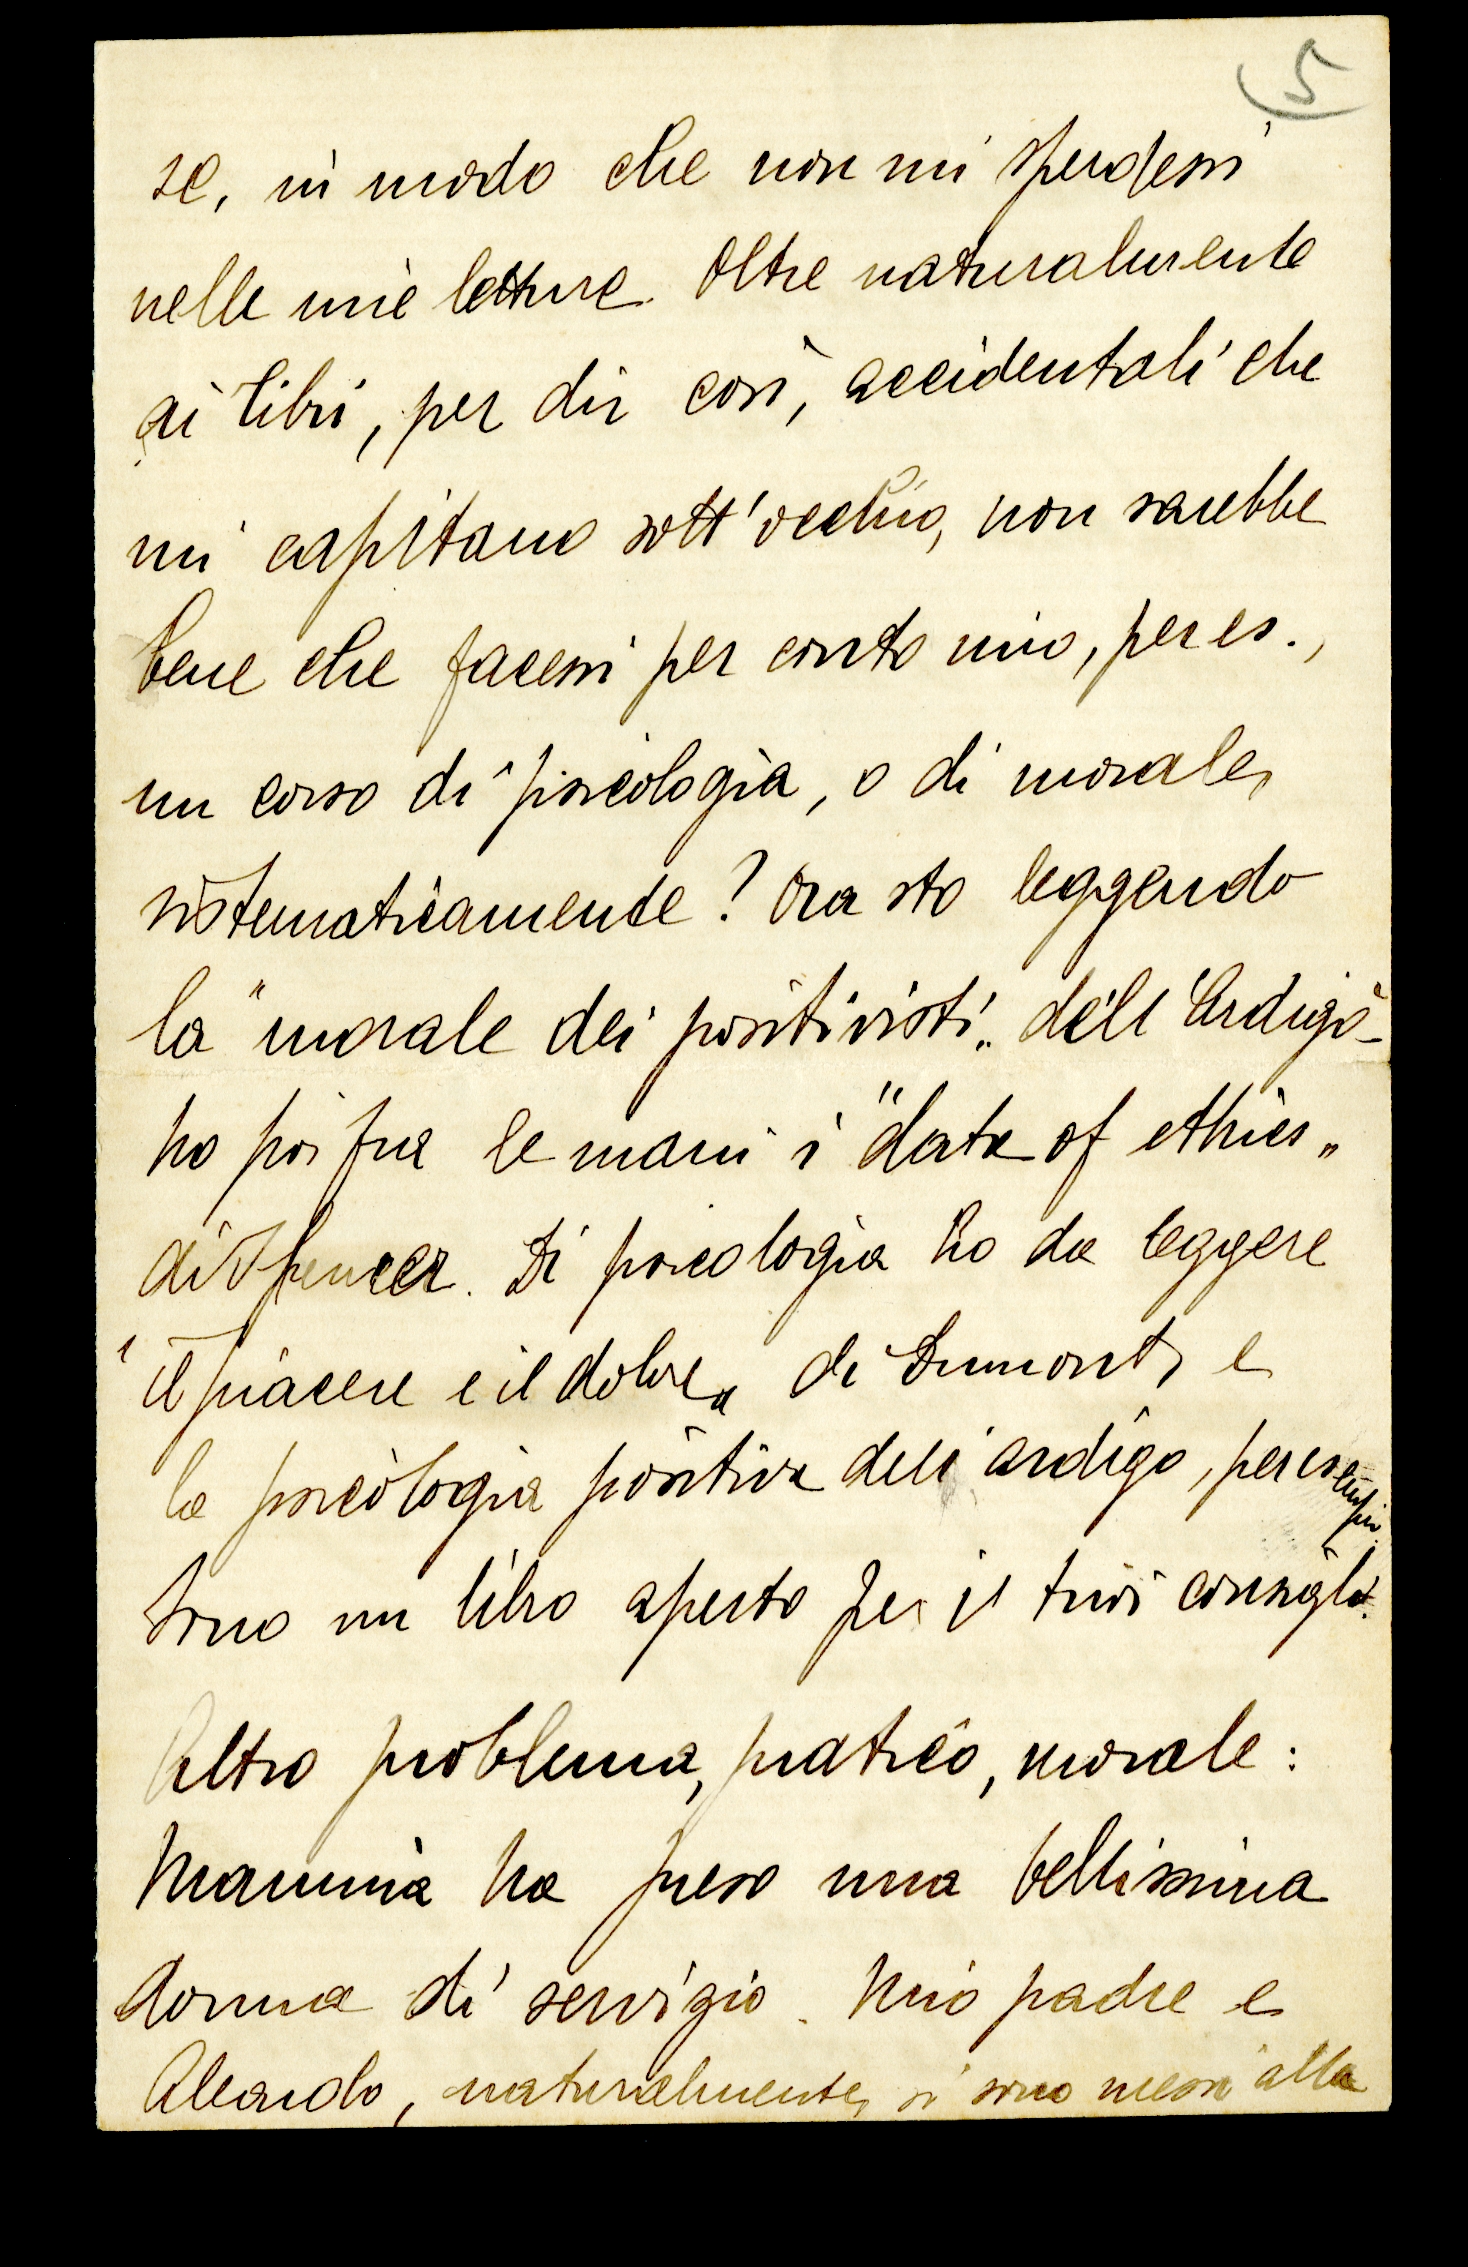 5
se, in modo che non mi sperdessi
nelle mie letture. Oltre naturalmente
ai libri, per dir così, accidentali che
mi capitano sott'occhio, non sarebbe
bene che facessi per conto mio, per es.,
un corso di psicologia, o di morale,
sistematicamente? Ora sto leggendo
la "morale dei positivisti„ dell'Ardigò_
ho poi fra le mani i "data of ethics„
di Spencer. Di psicologia ho da leggere
"il piacere e il dolore„ di Dumont, e
la psicologia positiva dell'ardigo, per esempio.
Sono un libro aperto per i tuoi consigli.
Altro problema, pratico, morale:
Mammà ha preso una bellissima
donna di servizio. Mio padre e
Aleardo, naturalmente, si sono messi alla